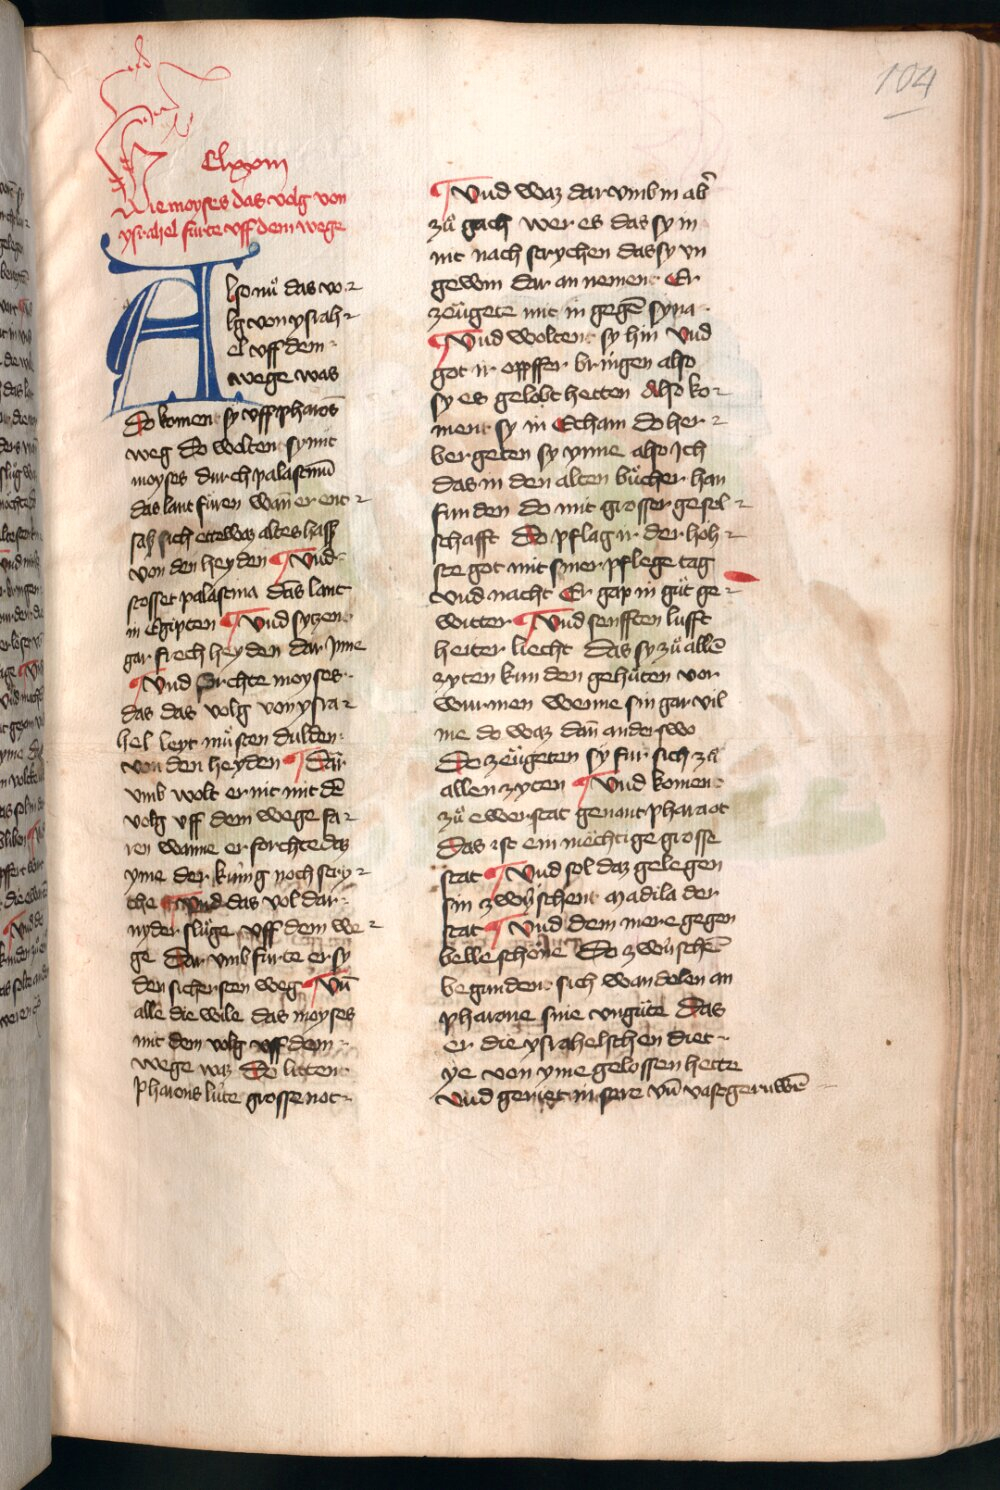 104
Clxxiii
Wie moyses das volg von
ysrahel fürte vff dem wege
Also nů das vo-
lg von ysrah-
el vff dem
wege was
Do komen sy vff pharos
weg Do wolten sy mit
moyses durch palastinū
das lant füren wan̄ er ent-
sasz sich ettewas altes hassz
von den heyden ¶ Vnd
stosset palastina das lant
in Egipten ¶ Vnd sytzen
gar frech heyden dar Jnne
¶ Vnd forchte moyses
das das volg von ysra-
hel leyt müsten dulden
von den heyden ¶ Dar
vmb wolt er nit mit dē
volg vff dem wege fa-
ren wanne er forchte daz
yme der kúnig noch stry-
che ¶ Vnd das vol dar
nyder slüge vff dem we-
ge Dar vmb fürte er sy
den sichersten weg ¶ Vn̄
alle die wile das moyses
mit dem volg vff dem
wege waz Do litten
Pharons lúte grosse not
¶ Vnd waz dar vmb in ab̄
zů gach wer es das sy in
nit nach strychen das sy vn
gewin dar an nemen Er
zeügete mit in gegē Syna
¶ Vnd wolten sy hin Vnd
got ir oppffer bringen also
sy es gelobt hetten Also ko-
ment sy in Etham do her-
bergeten sy ynne also Jch
das in den alten bůcher han
funden do mit grosser gesel-
schafft Do pflag ir der hóh-
ste got mit siner pflege tag
vnd nacht Er gap in gůt ge-
witter ¶ Vnd senfften lufft
heiter liecht das sy zů allē
zyten kunden gehůten vor
wurmen wenne sin gar vil
me do waz dan̄ anderswo
Do zeügeten sy für sich zů
allen zyten ¶ Vnd koment
zů ewerstat genant pharaot
das ist ein möchtige grosse
stat ¶ Vnd sol daz gelegen
sin zwúschent Madila der
stat ¶ Vnd dem mere gegen
belleschöne Do zwúschē
begunden sich wandelen an
pharone sine vngüte Das
er die ysrahelschen diet
ye von yme gelossen hette
Vnd geriet in sere vn̄ vaste geruwē